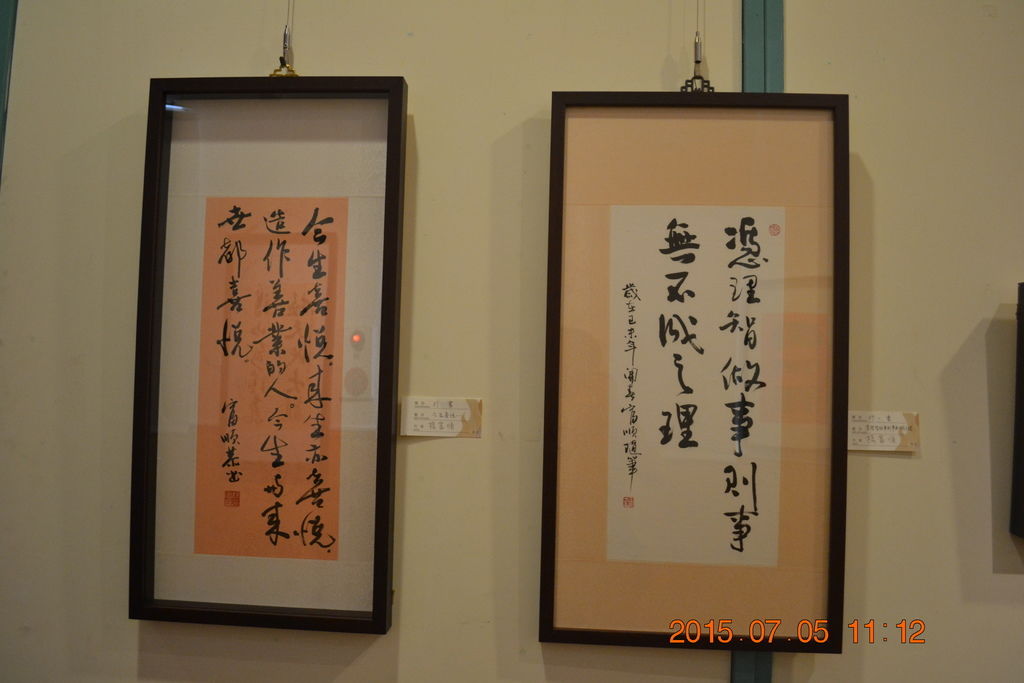 今生喜悅,來生亦喜悅,
造作善業的人。今生与來
世都喜悅。
富順恭書
憑理智做事則事
無不成之理
富順隨筆
2015.07.05 11:12